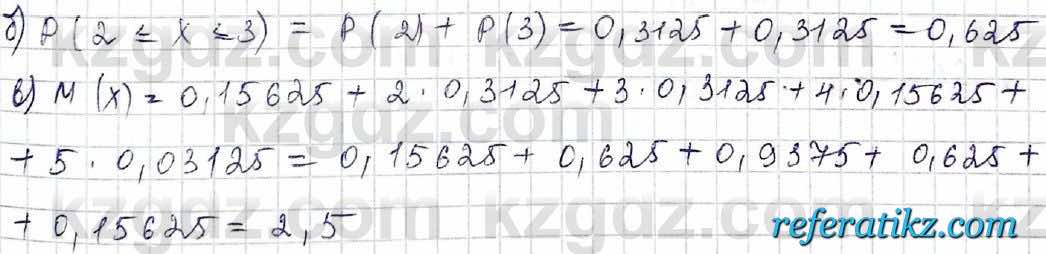 б) P(2 ≤ X ≤ 3) = P(2) + P(3) = 0,3125 + 0,3125 = 0,625
в) M(X) = 0,15625 + 2 · 0,3125 + 3 · 0,3125 + 4 · 0,15625 +
+ 5 · 0,03125 = 0,15625 + 0,625 + 0,9375 + 0,625 +
+ 0,15625 = 2,5
kzgdz.com
referatikz.com